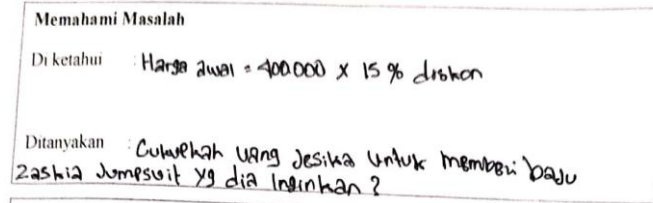 Memahami Masalah
Di ketahui : Harga awal = 400.000 x 15 % diskon
Ditanyakan : Cukupkah uang Jesika untuk memberi baju
Zaskia Jumpsuit yg dia Inginkan ?